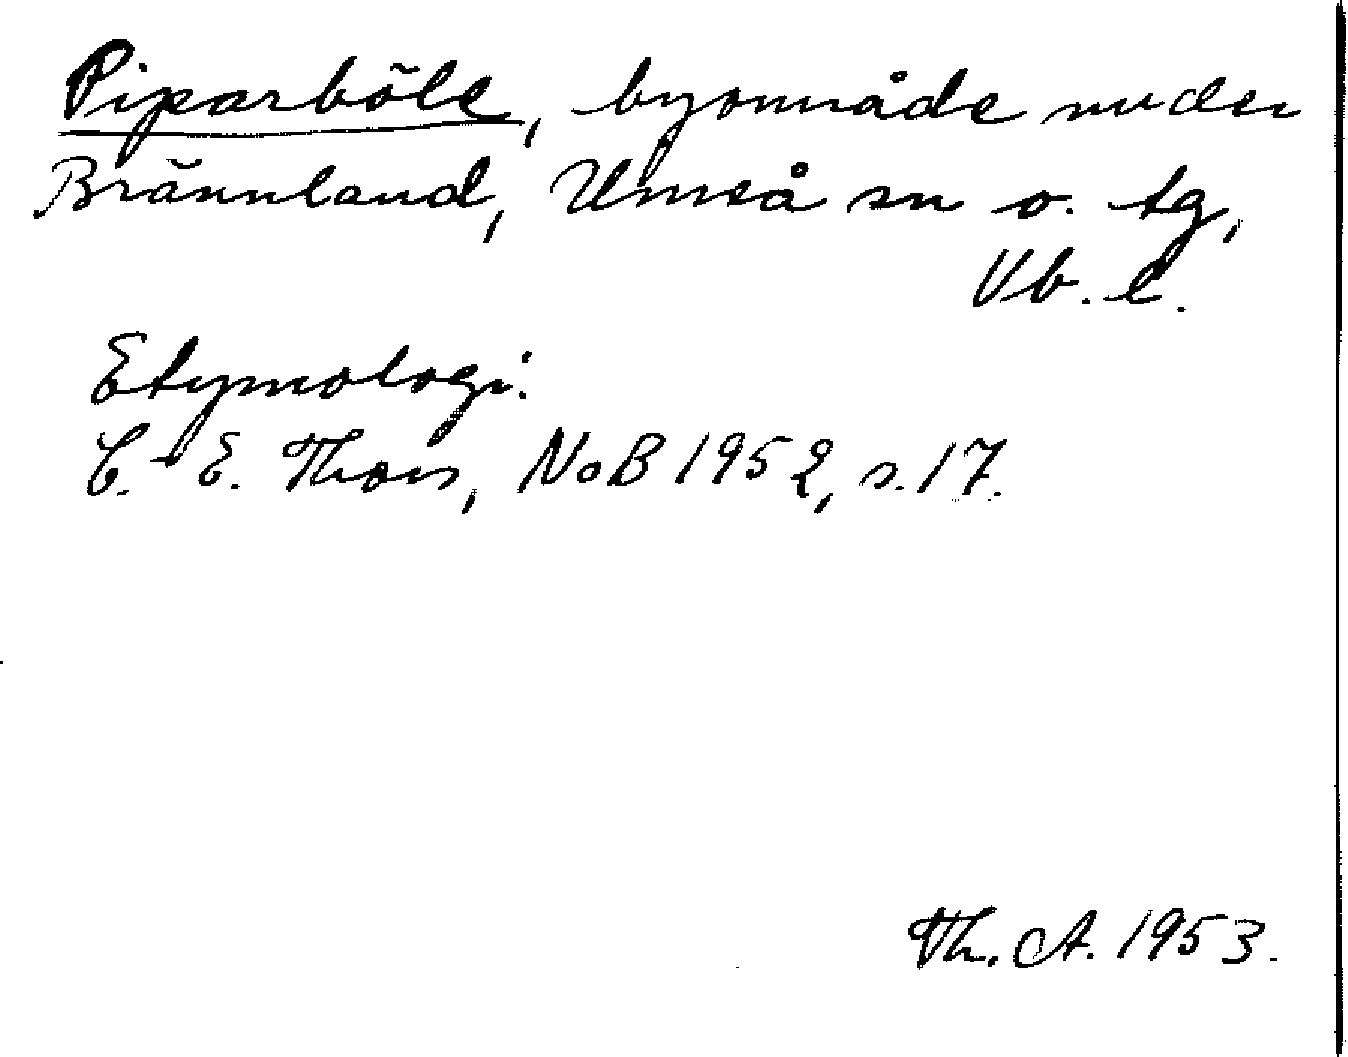 Piparböle, byområde under
Brännland, Umeå sn o. tg,
Vb. l.
Etymologi:
C.-E. Thors, NoB 1952, s. 17.
Th. A. 1953.